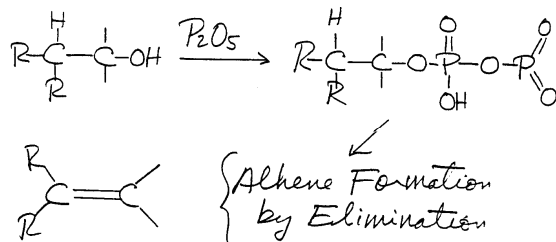 H
R-C-C-OH
R
P2O5
H
R-C-C-O-P-O-P
R
O
OH
O
O
R
C=C
R
Alkene Formation
by Elimination